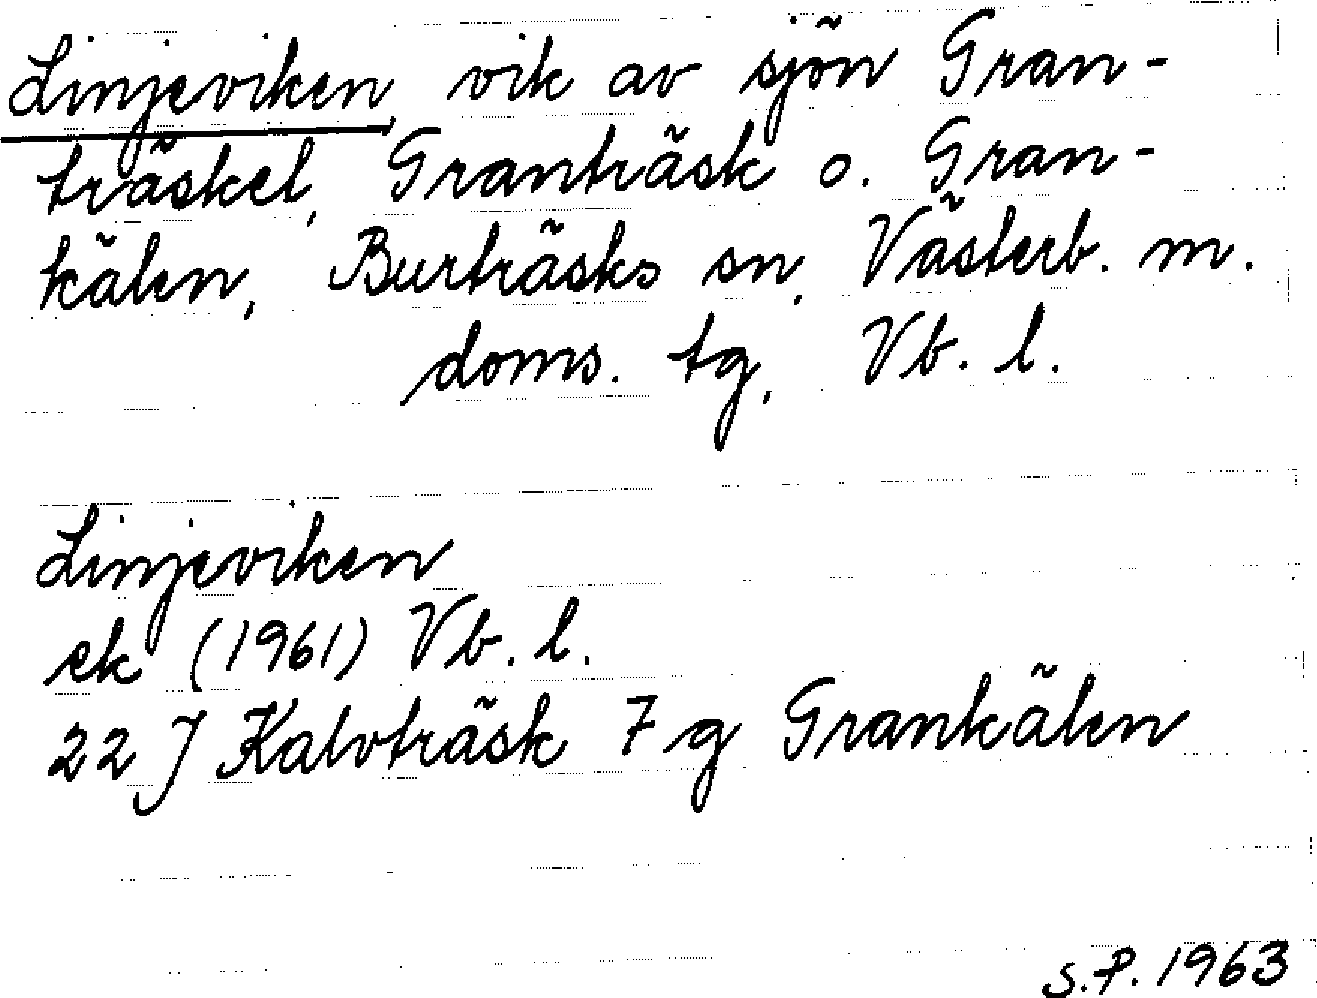 Linjeviken, vik av sjön Gran-
träsket, Granträsk o. Gran-
kälen, Burträsks sn, Västerb. m.
doms. tg, Vb. l.
Linjeviken
ek (1961) Vb. l.
22 J Kalvträsk 7 g Grankälen
S.P. 1963